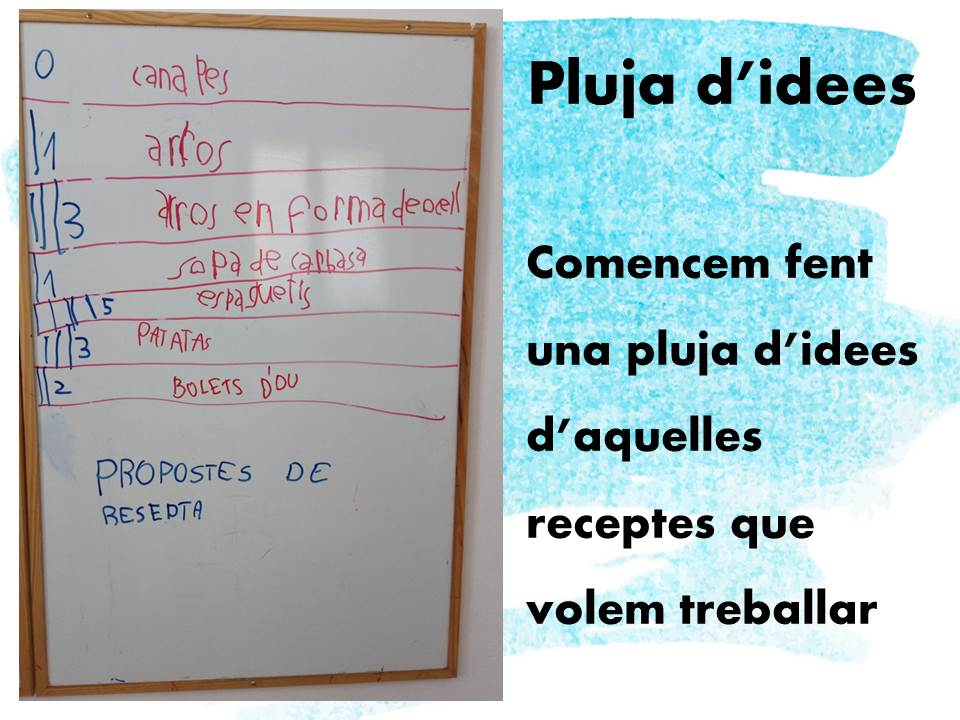 0 canapes
1 arros
3 arros en forma de ocell
1 sopa de carbasa
5 espaguetis
3 PATATAS
2 BOLETS D'OU
PROPOSTES DE
RESEPTA
Pluja d’idees
Comencem fent
una pluja d’idees
d’aquelles
receptes que
volem treballar